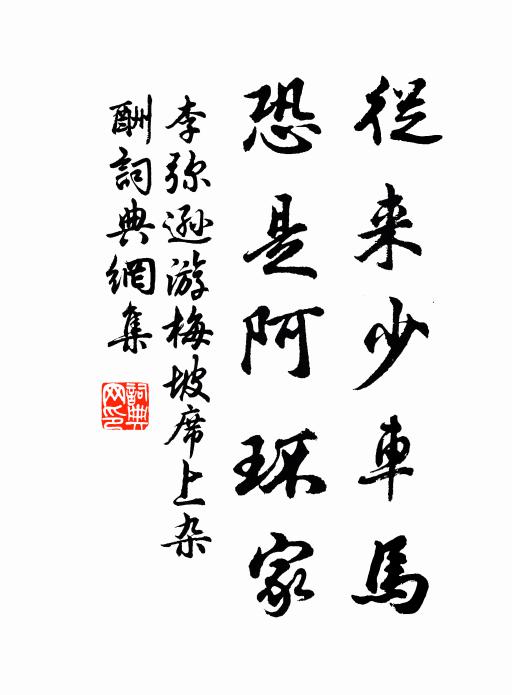 從来少車馬
恐是阿环家
李弥遜游梅坡席上杂
酬詞典網集
詞典
网印